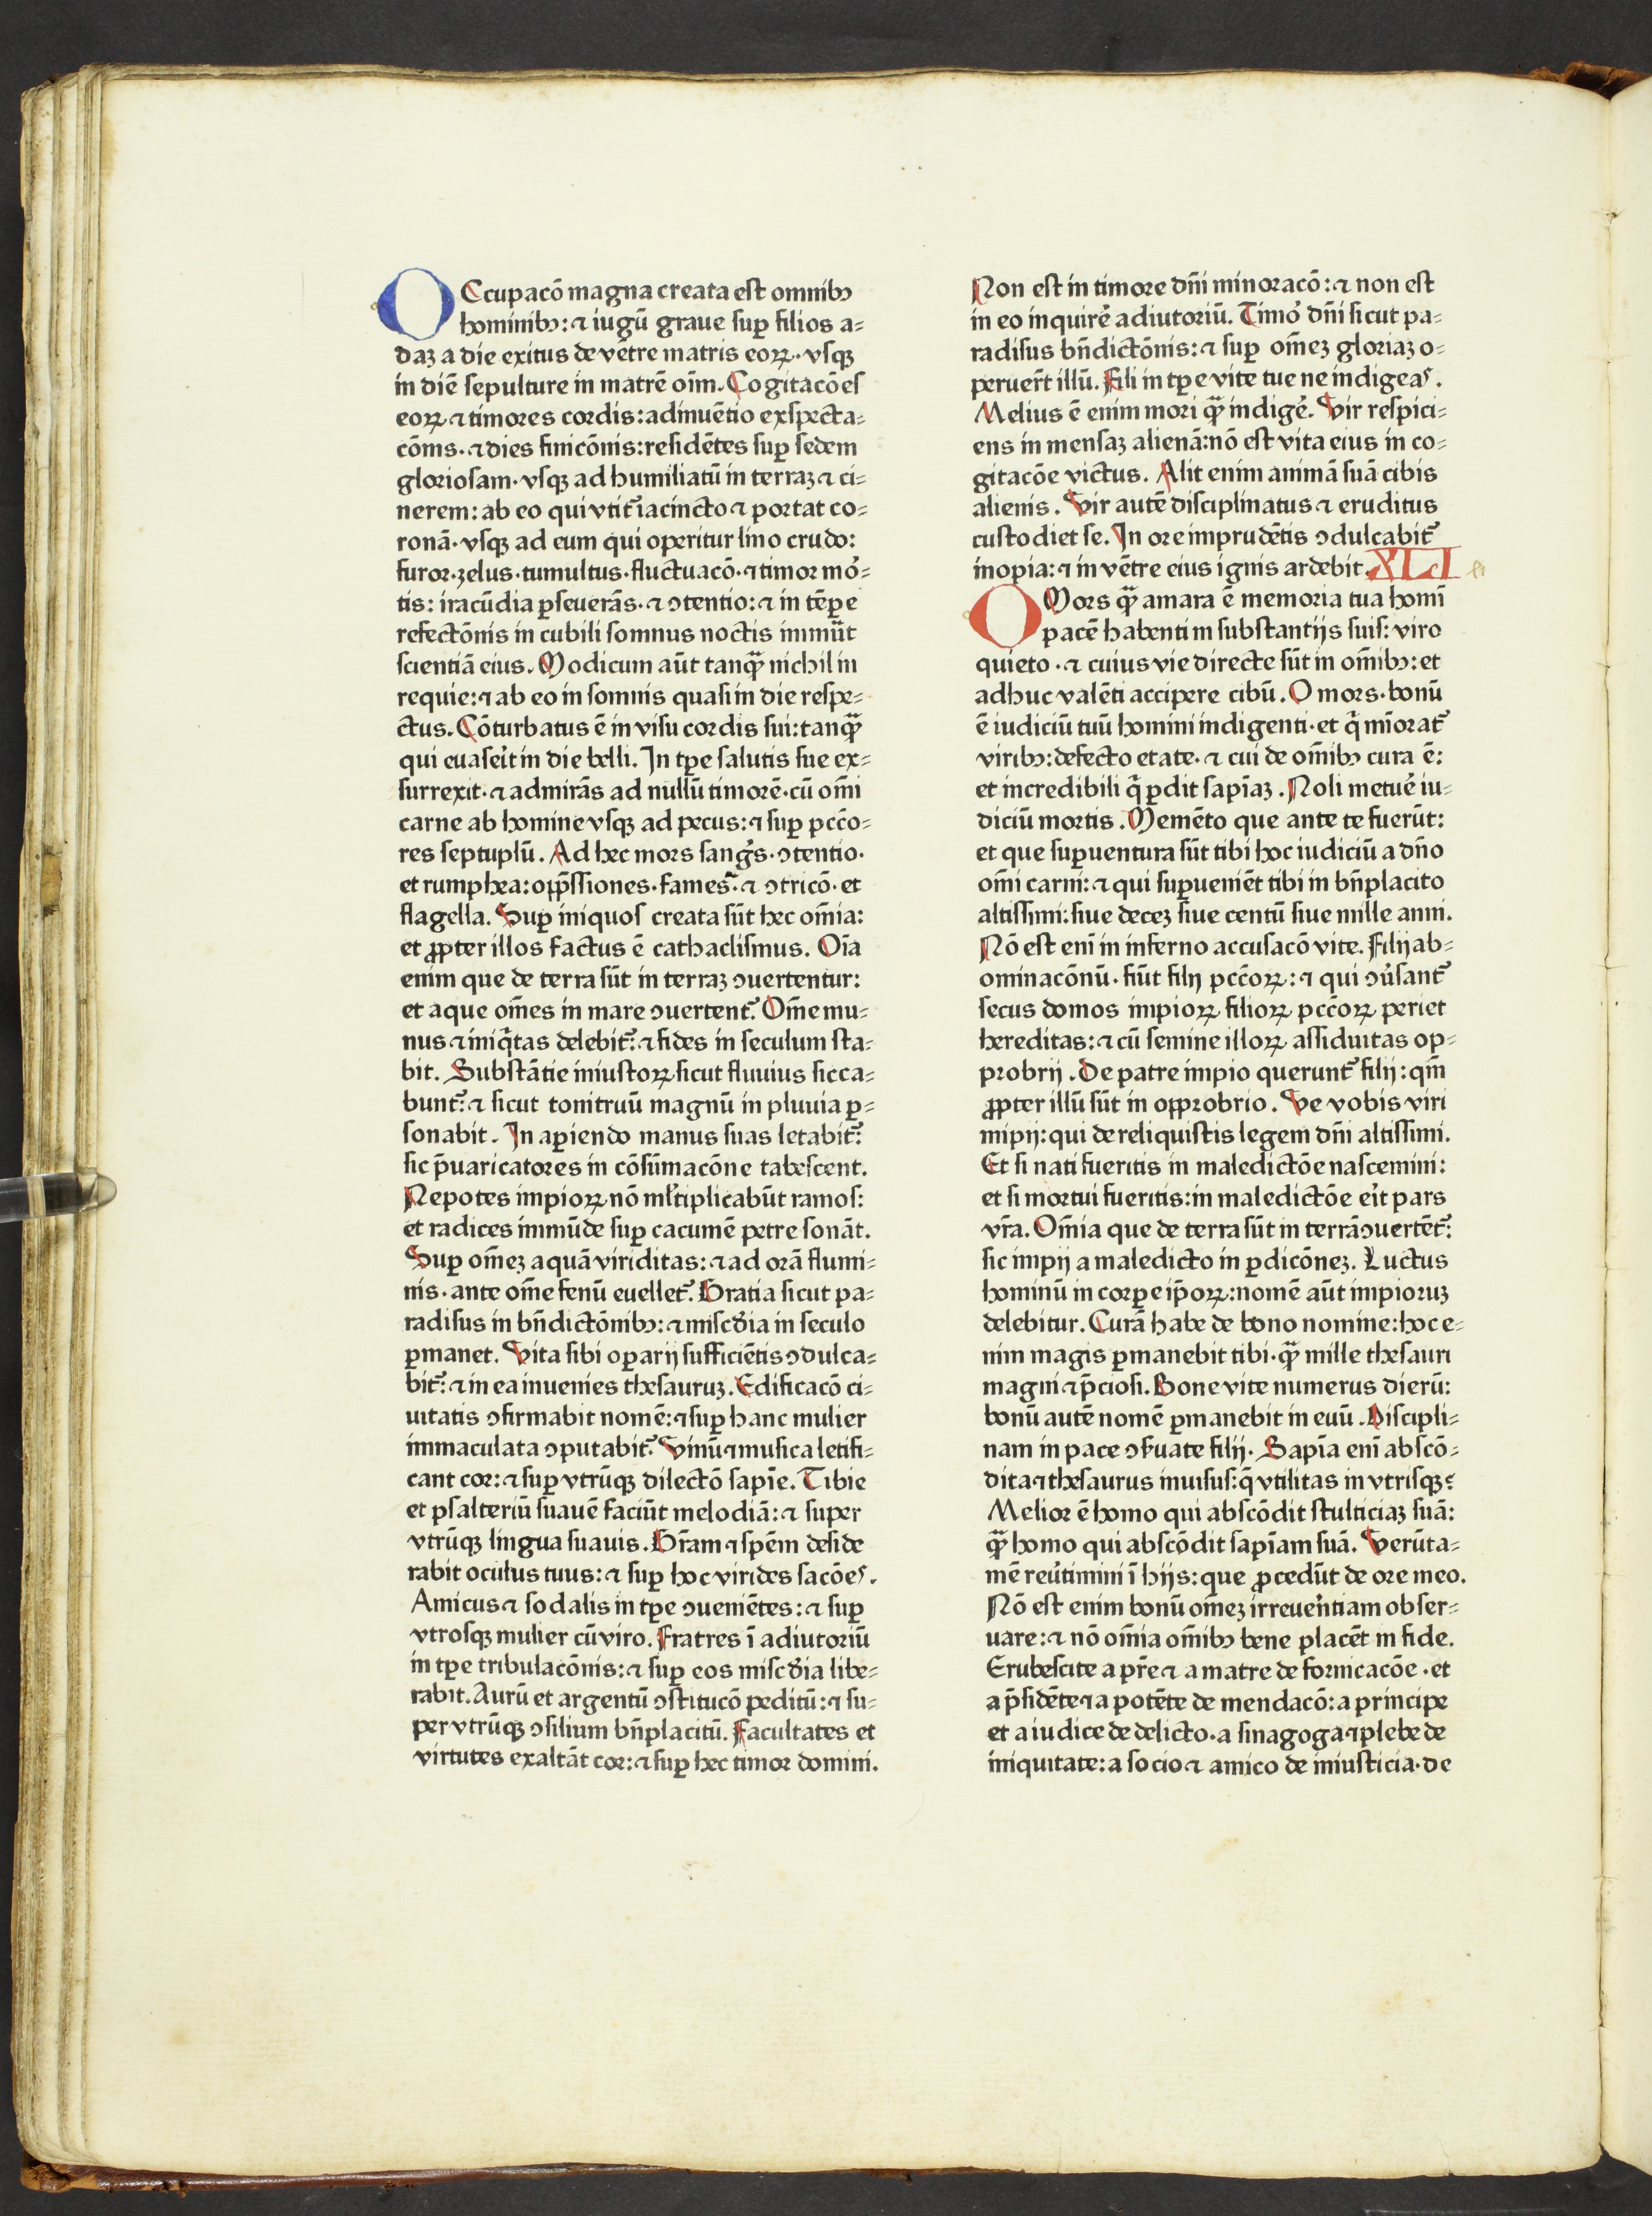 OCcupacō magna creata est omnibꝫ
hominibꝫ: ⁊ iugū graue suꝑ filios a⸗
daꝫ a die exitus de vētre matris eoꝝ· vsqꝫ
in diē sepulture in matrē oīm. Cogitacōes
eoꝝ ⁊ timores cordis: adinuētio exspecta⸗
cōnis· ⁊ dies finicōnis: residētes suꝑ sedem
gloriosam· vsqꝫ ad humiliatū in terraꝫ ⁊ ci⸗
nerem: ab eo qui vtit᷑ iacincto ⁊ portat co⸗
ronā· vsqꝫ ad eum qui operitur lino crudo:
furor· zelus· tumultus· fluctuacō· ⁊ timor mo᷑⸗
tis: iracūdia ꝑseuerās· ⁊ ↄtentio: ⁊ in tēpe
refectōnis in cubili somnus noctis immūt
scientiā eius. Modicum aūt tanqꝫ̄ nichil in
requie: ⁊ ab eo in somnis quasi in die respe⸗
ctus. Cōturbatus ē in visu cordis sui: tanqꝫ̄
qui euase᷑it in die belli. In tꝑe salutis sue ex⸗
surrexit· ⁊ admirās ad nullū timorē· cū om̄i
carne ab homine vsqꝫ ad pecus: ⁊ suꝑ pccō⸗
res septuplū. Ad hec mors sang᷑s· ↄtentio·
et rumphea: opp̄ssiones· fames᷑· ⁊ ↄtricō· et
flagella. Suꝑ iniquos creata sūt hec om̄ia:
et ꝓpter illos factus ē cathaclismus. Oīa
enim que de terra sūt in terraꝫ ↄuertentur:
et aque om̄es in mare ↄuertent᷑. Om̄e mu⸗
nus ⁊ iniq̄tas delebit᷑: ⁊ fides in seculum sta⸗
bit. Substātie iniustoꝝ sicut fluuius sicca⸗
bunt᷑: ⁊ sicut tonitruū magnū in pluuia ꝑ⸗
sonabit. In aꝑiendo manus suas letabit᷑:
sic p̄uaricatores in cōsūmacōne tabescent.
Nepotes impioꝝ nō ml̄tiplicabūt ramos:
et radices immūde suꝑ cacumē petre sonāt.
Suꝑ om̄eꝫ aquā viriditas: ⁊ ad orā flumi⸗
nis· ante om̄e fenū euellet᷑. Gratia sicut pa⸗
radisus in bn̄dictōnibꝫ: ⁊ misc̄dia in seculo
ꝑmanet. Vita sibi oꝑarij sufficiētis ↄdulca⸗
bit᷑: ⁊ in ea inuenies thesauruꝫ. Edificacō ci⸗
uitatis ↄfirmabit nomē: ⁊ suꝑ hanc mulier
immaculata ↄputabit᷑. Vinū ⁊ musica letifi⸗
cant cor: ⁊ suꝑ vtrūqꝫ dilectō sapīe. Tibie
et psalteriū suauē faciūt melodiā: ⁊ super
vtrūqꝫ lingua suauis. Gr̄am ⁊ spēm deside
rabit oculus tuus: ⁊ suꝑ hoc virides sacōes.
Amicus ⁊ sodalis in tꝑe ↄueniētes: ⁊ suꝑ
vtrosqꝫ mulier cū viro. Fratres ī adiutoriū
in tꝑe tribulacōnis: ⁊ suꝑ eos misc̄dia libe⸗
rabit. Aurū et argentū ↄstitucō peditū: ⁊ su⸗
per vtrūqꝫ ↄsilium bn̄placitū. Facultates et
virtutes exaltāt cor: ⁊ suꝑ hec timor domini.
Non est in timore dn̄i minoracō: ⁊ non est
in eo inquire᷑ adiutoriū. Timo᷑ dn̄i sicut pa⸗
radisus bn̄dictōnis: ⁊ suꝑ om̄eꝫ gloriaꝫ o⸗
peruer̄t illū. Fili in tꝑe vite tue ne indigeas.
Melius ē enim mori qꝫ̄ indige᷑. Vir respici⸗
ens in mensaꝫ alienā: nō est vita eius in co⸗
gitacōe victus. Alit enim animā suā cibis
alienis. Vir autē disciplinatus ⁊ eruditus
custodiet se. In ore imprudētis ↄdulcabit᷑
inopia: ⁊ in vētre eius ignis ardebit. XLI
O Mors qꝫ̄ amara ē memoria tua homī
pacē habenti in substantijs suis: viro
quieto· ⁊ cuius vie directe sūt in om̄ibꝫ: et
adhuc valēti accipere cibū. O mors· bonū
ē iudiciū tuū homini indigenti· et q̄ mīorat᷑
viribꝫ: defecto etate· ⁊ cui de om̄ibꝫ cura ē:
et incredibili q̄ ꝑdit sapīaꝫ. Noli metue᷑ iu⸗
diciū mortis. Memēto que ante te fuerūt:
et que suꝑuentura sūt tibi hoc iudiciū a dn̄o
om̄i carni: ⁊ qui suꝑueniēt tibi in bn̄placito
altissimi: siue deceꝫ siue centū siue mille anni.
Nō est enī in inferno accusacō vite. Filij ab⸗
ominacōnū· fiūt filij pccōꝝ: ⁊ qui ↄu᷑sant᷑
secus domos impioꝝ filioꝝ pccōꝝ periet
hereditas: ⁊ cū semine illoꝝ assiduitas op⸗
probrij. De patre impio querunt᷑ filij: qm̄
ꝓpter illū sūt in opprobrio. Ve vobis viri
impij: qui dereliquistis legem dn̄i altissimi.
Et si nati fueritis in maledictōe nascemini:
et si mortui fueritis: in maledictōe e᷑it pars
vr̄a. Om̄ia que de terra sūt in terrā ↄuertēt᷑:
sic impij a maledicto in ꝑdicōneꝫ. Luctus
hominū in corꝑe ip̄oꝝ: nomē aūt impioruꝫ
delebitur. Curā habe de bono nomine: hoc e⸗
nim magis ꝑmanebit tibi· qꝫ̄ mille thesauri
magni ⁊ p̄ciosi. Bone vite numerus dierū:
bonū autē nomē ꝑmanebit in euū. Discipli⸗
nam in pace ↄs̄uate filij. Sapīa enī abscō⸗
dita ⁊ thesaurus inuisus: q̄ vtilitas in vtrisqꝫ?
Melior ē homo qui abscōdit stulticiaꝫ suā:
qꝫ̄ homo qui abscōdit sapīam suā. Verūta⸗
mē reu᷑timini ī hijs: que ꝓcedūt de ore meo.
Nō est enim bonū om̄eꝫ irreue᷑ntiam obser⸗
uare: ⁊ nō om̄ia om̄ibꝫ bene placēt in fide.
Erubescite a pr̄e ⁊ a matre de fornicacōe· et
a p̄sidēte ⁊ a potēte de mendacō: a principe
et a iudice de delicto· a sinagoga ⁊ plebe de
iniquitate: a socio ⁊ amico de iniusticia· de